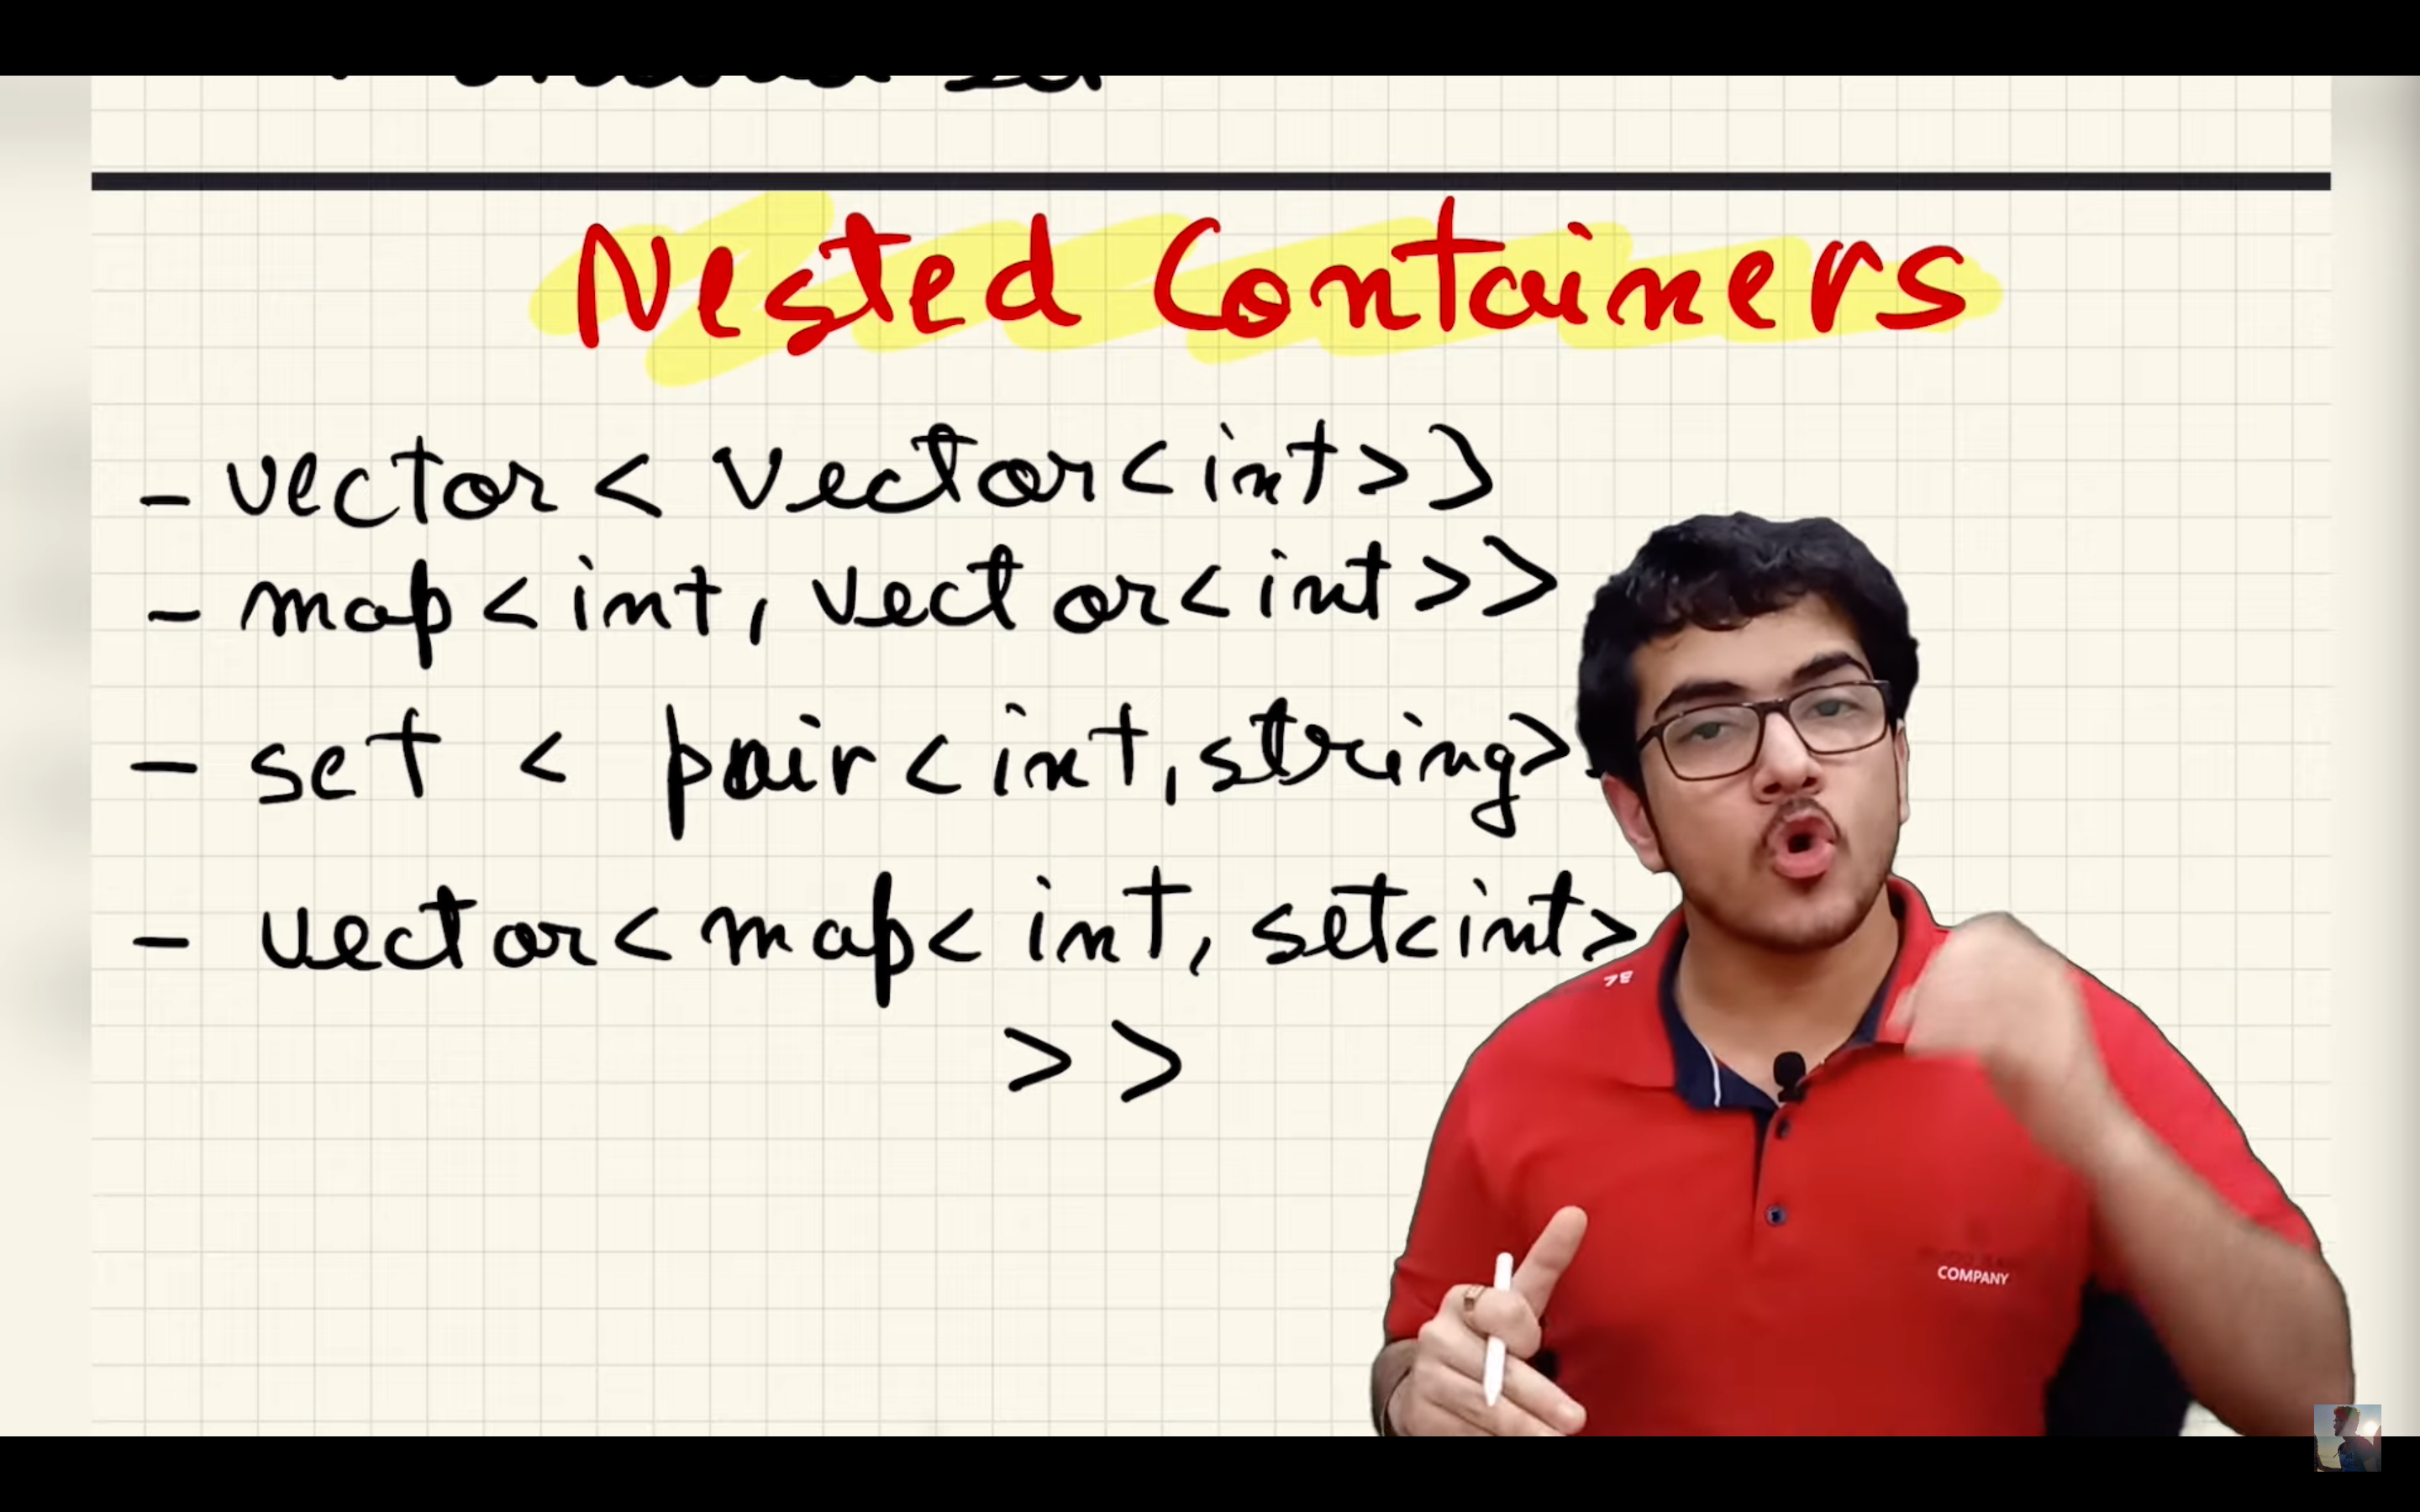 Nested Containers
- vector < vector<int>>
- map<int, vector<int>>
- set < pair<int, string>
- vector<map< int, set<int>
>>
COMPANY